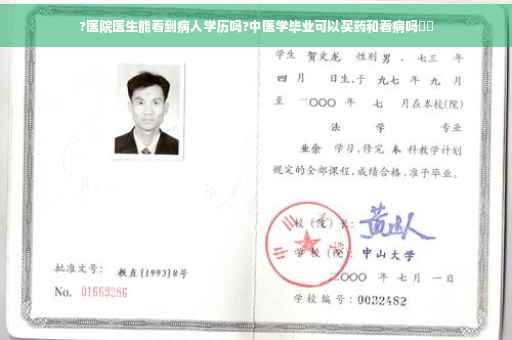 ?医院医生能看到病人学历吗?中医学毕业可以买药和看病吗
学生 贺文龙 性别 男 、七三 年
四 月 日生,于 九七 年 九 月
至 二〇〇〇 年 七 月在本校(院)
法 学 专业
业余 学习,修完 本 科教学计划
规定的全部课程,成绩合格,准予毕业。
校 (院) 长:
学 校 (院): 中山大学
二〇〇〇 年 七 月 一 日
学校编号: 0032482
批准文号: 教直[1993]8号
No. 01669286